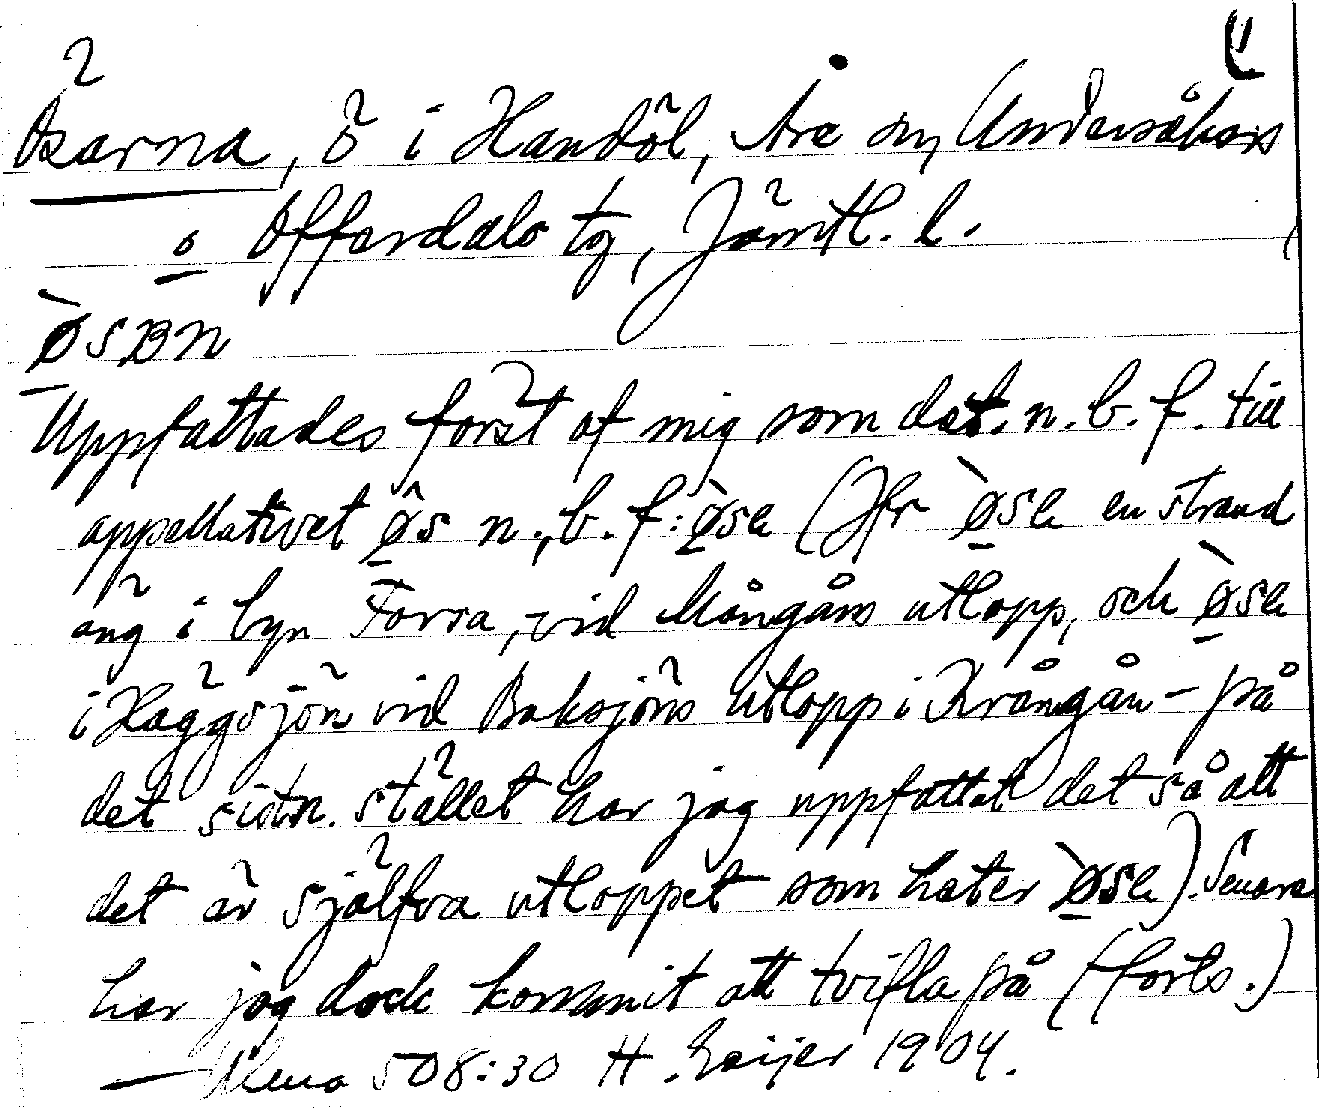 Ösarna, ö i Handöl, Åre sn, Undersåkers
o Offerdals tg, Jämtl. l.
øsBn
Uppfattades först af mig som dat. n. b. f. till
appellativet øs n., b. f: øsa (Jfr øsa en strand
äng i byn Forra, vid Mångåns utlopp, och øsa
i Häggsjön vid Baksjöns utlopp i Krångån - på
det sistn. stället har jag uppfattat det så att
det är själfva utloppet som heter øsa). Senare
har jag dock kommit att tvifla på (forts.)
508:30 H. Geijer 1904.